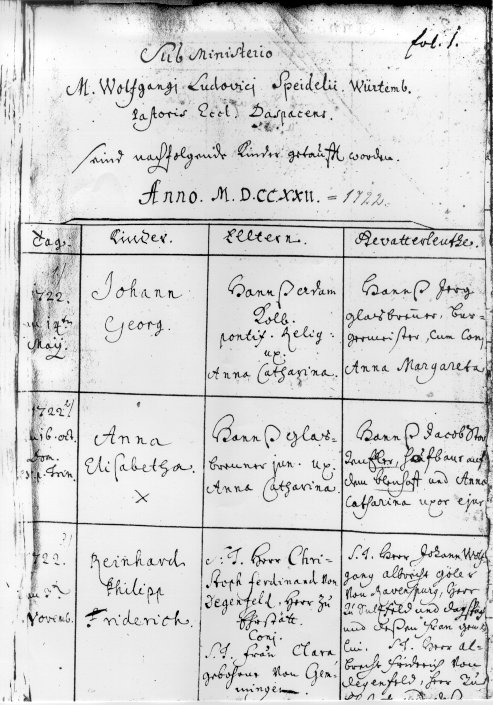 fol. 1.
Sub Ministerio
M. Wolfgangi Ludovici Speidelii Würtemb.
Pastoris Eccl. Daspacens.
seind nachfolgende Kinder getaufft worden.
Anno. M.D.CCXXII. = 1722.
Tag. Kinder. Eltern. Gevatterleuthe.
1/
1722.
14ten
Maij.
Johann
Georg.
Hannß Adam
Kolb.
pontif. Relig.
ux.
Anna Catharina.
Hannß Jerg
Glasbrenner, Bur-
germeister, cum Conj.
Anna Margareta
2/
1722
16. oct.
Dom.
Trin.
Anna
Elisabetha.
X
Hannß Glas-
brenner jun. ux.
Anna Catharina.
Hannß Jacob
Hofbaur auf
dem und Anna
Catharina uxor ejus
3/
1722.
3
Novemb.
Reinhard
Philipp
Friderich.
S. T. Herr Chri-
stoph Ferdinand von
Degenfeld, Herr zu
Ehestätt.
Conj.
S. T. Frau Clara
gebohrne von Gem-
mingen.
S. T. Herr Johann Wolf-
gang Albrecht Göler
von Ravenspurg, Herr
zu Sultzfeld und
und deßen Frau
S. T. Herr Al-
brecht Friderich von
Degenfeld, Herr zu